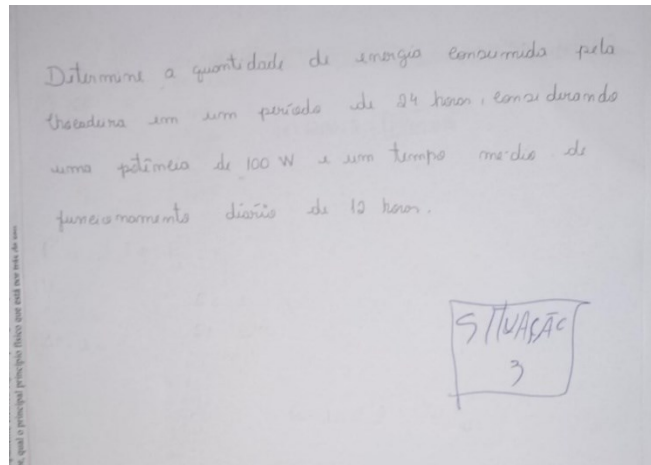 Determine a quantidade de energia consumida pela
em um período de 24 horas, considerando
uma potência de 100 W e um tempo médio de
funcionamento diário de 12 horas.
SITUAÇÃO
3
, qual o principal princípio físico que está por trás do uso